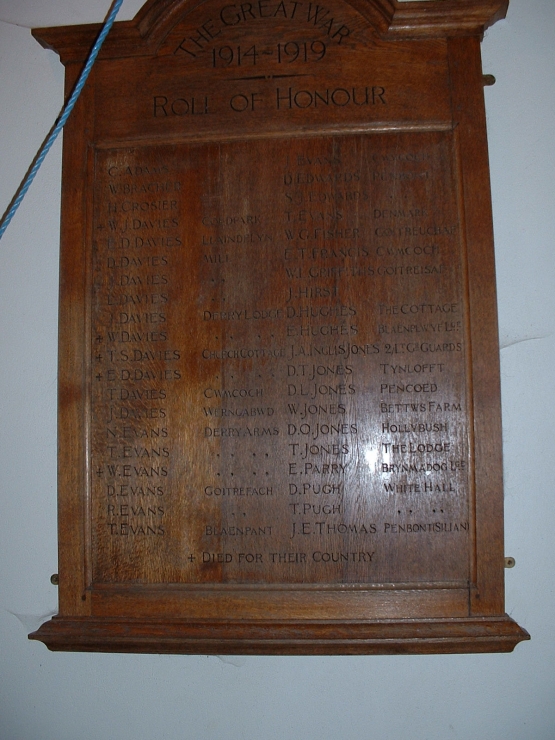 THE GREAT WAR
1914-1919
ROLL OF HONOUR
C. ADAMS EVANS
W. BRACHER D.J. EDWARDS
H. CROSIER EDWARDS
+ W.J. DAVIES T. EVANS DENMARK
E.D. DAVIES W.G. FISHER
D. DAVIES MILL E.T. FRANCIS CWMCOCH
DAVIES
DAVIES J. HIRST
J. DAVIES DERRY LODGE D. HUGHES THE COTTAGE
+ W. DAVIES . . . . E. HUGHES
+ T.S. DAVIES CHURCH COTTAGE J.A. INGLIS JONES 2 LT. GDS GUARDS
+ E.D. DAVIES . . . . D.T. JONES TYNLOFFT
T. DAVIES CWMCOCH D.L. JONES PENCOED
J. DAVIES WERNGABWD W. JONES BETTWS FARM
N. EVANS DERRY ARMS D.O. JONES HOLLYBUSH
T. EVANS . . . . T. JONES THE LODGE
+ W. EVANS . . . . E. PARRY BRYNMADOG LGE
D. EVANS GOITREFACH D. PUGH WHITE HALL
R. EVANS . . T. PUGH . . . .
T. EVANS BLAENPANT J.E. THOMAS PENBONTSILIAN
+ DIED FOR THEIR COUNTRY